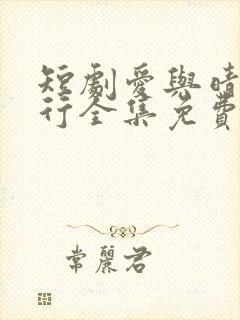 短劇愛與晴
行全集免費
常麗君